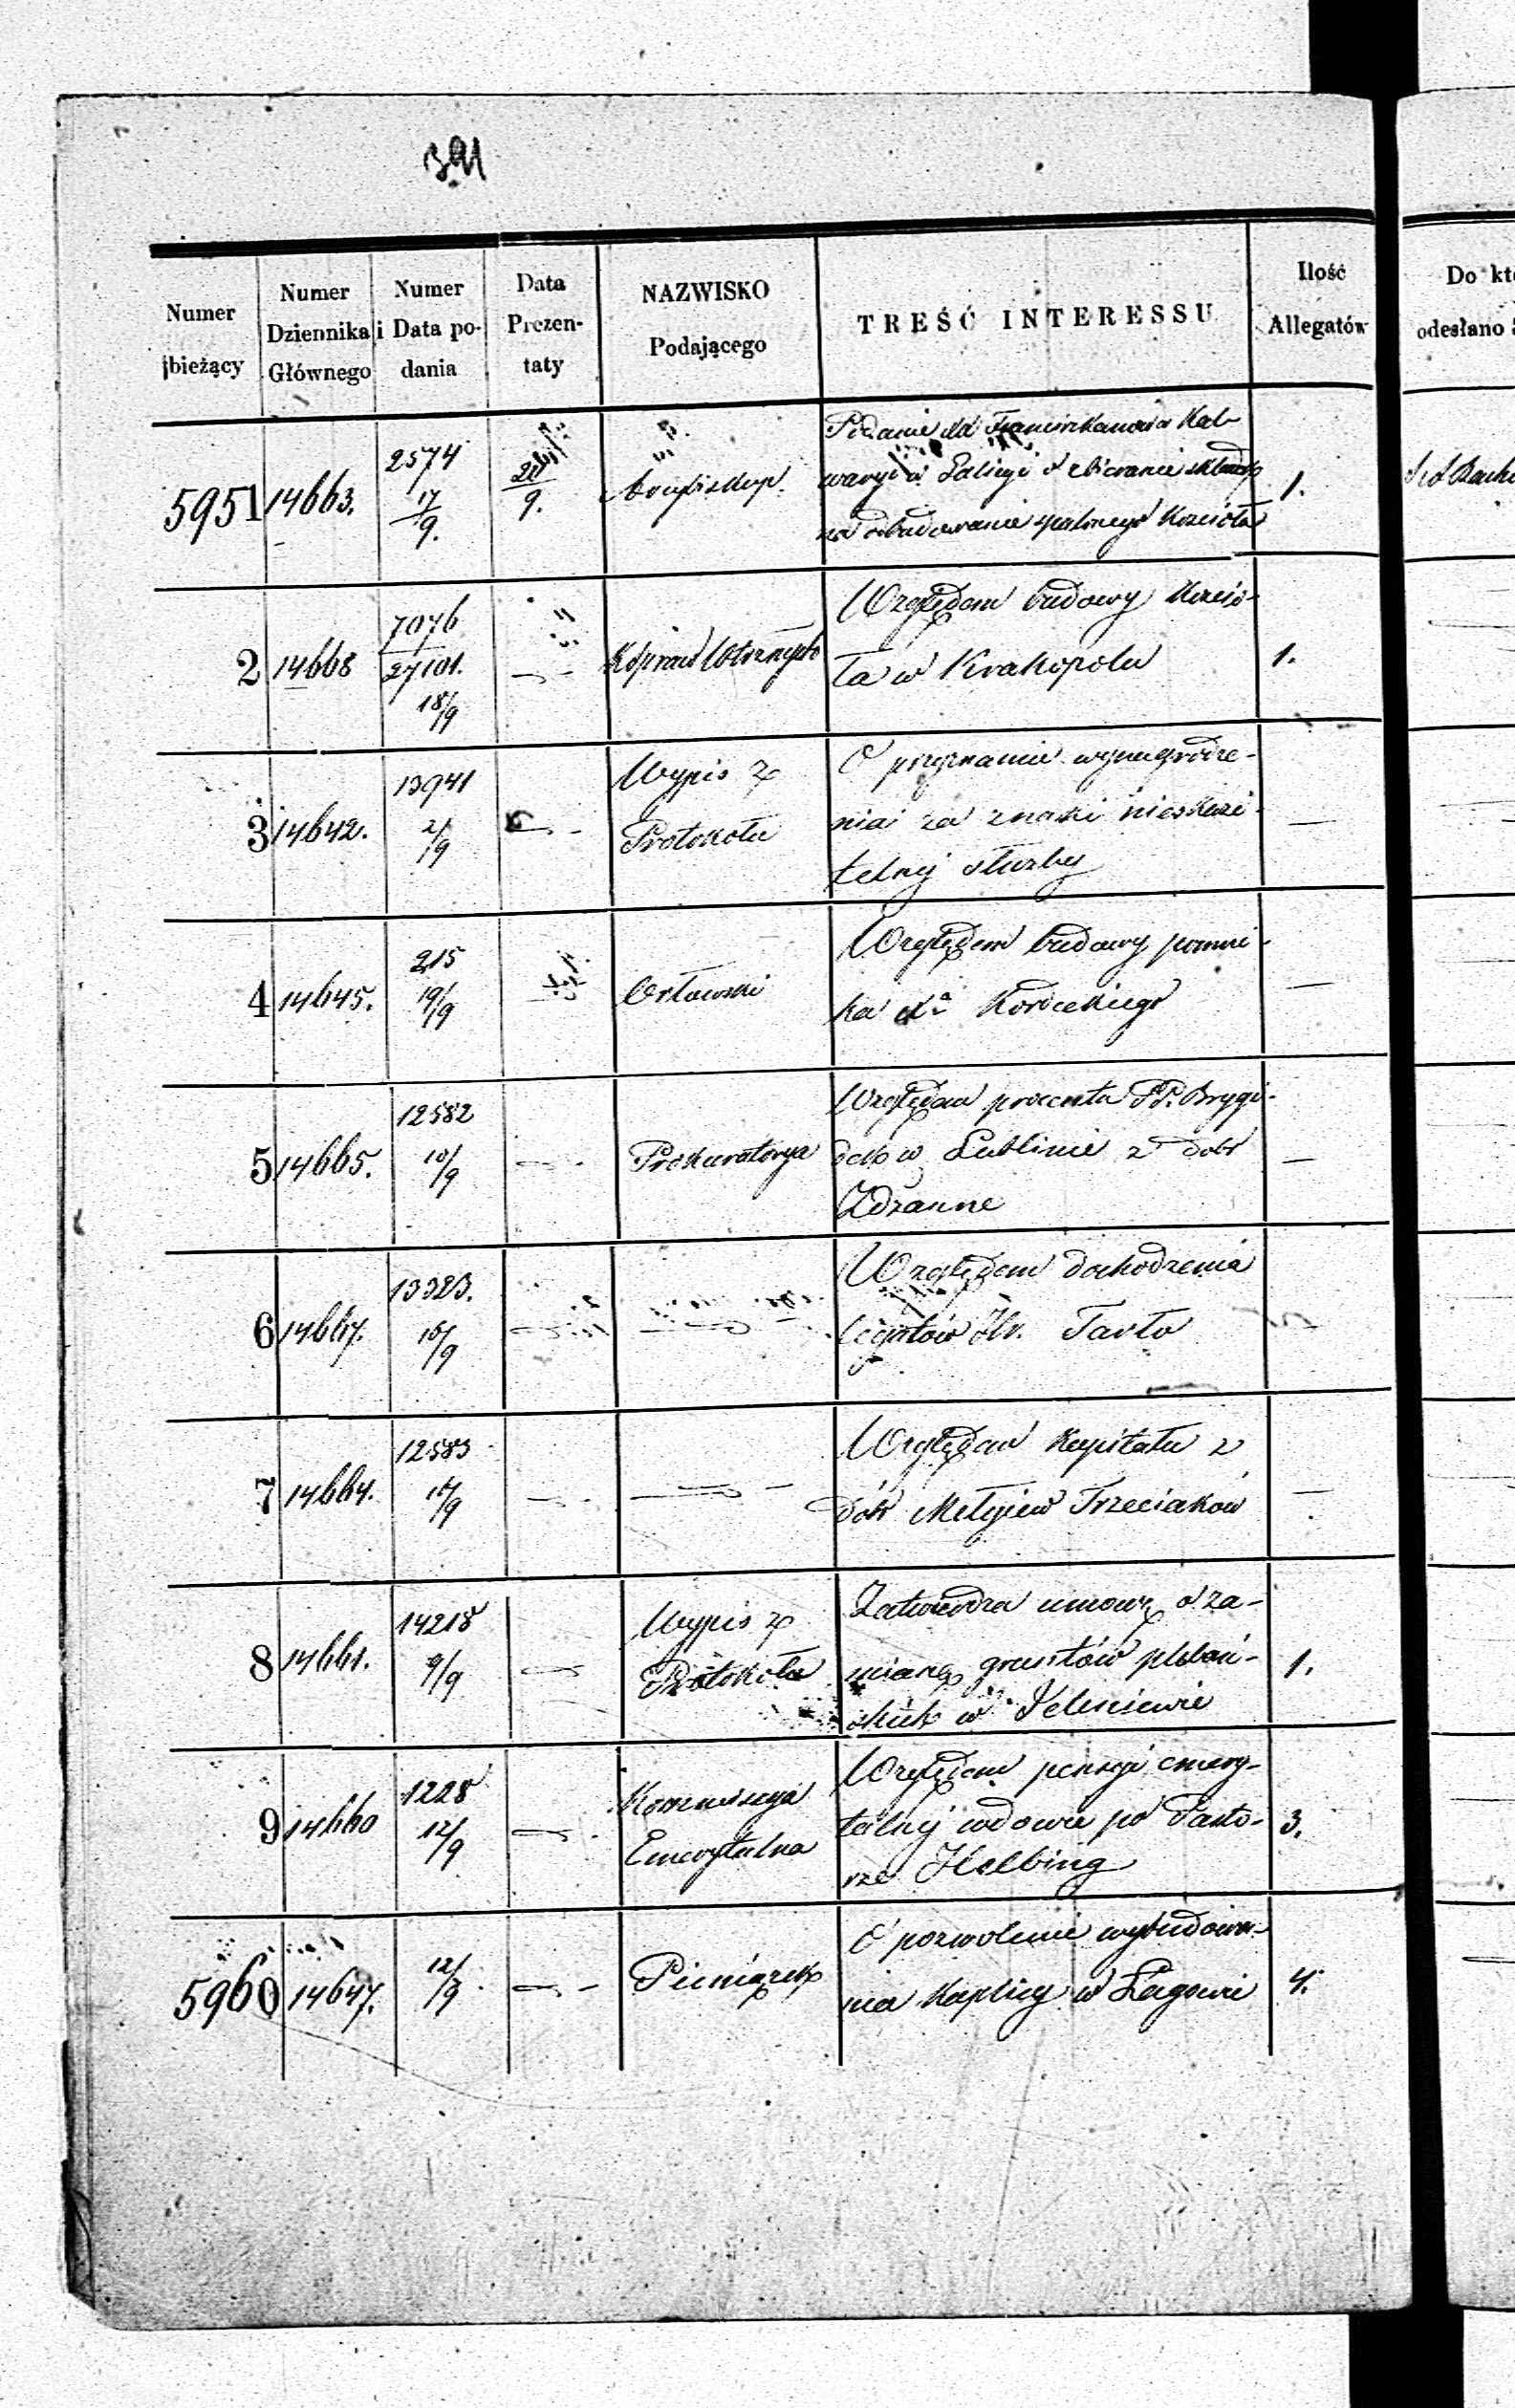 391
Numer bieżący
Numer Dziennika Głównego
Numer i Data podania
Data Prezentaty
NAZWISKO Podającego
TREŚĆ INTERESSU
Ilość Allegatów
Do kt
odesłano
5951 14663. 2574 17/9. 20/9. Arcybiskup. 1.
Podanie XX Franciszkanów z Kal-
waryi w Galicyi o zbieranie składek
na odbudowanie spalonego Kościoła
2 14668 7076 27101. 18/9 1.
Względem budowy Kościo-
ła w Krakopolu
3 14642. 13941 2/9 Wypis z Protokołu —
O przyznanie wynagrodze-
nia za znaki nieskazi-
telnej służby
4 14645. 215 19/9 Orłowski —
Względem budowy pomni-
ka Xa Kordeckiego
5 14665. 12582 10/9 Prokuratorya —
Względem procentu PP. Brygi-
dek w Lublinie z dóbr
Zdżanne
6 13323. 16/9 —
Względem dochodzenia
legatów Hr. Tarło
7 14664. 12583 —
Względem Kapitału z
dóbr Mełgiew Trzeciaków
8 14661. 14218 9/9 Wypis z Protokołu 1.
Zatwierdza umowę o za-
mianę gruntów plebań-
skich w
9 14660 1228 12/9 Kommissya Emerytalna 3.
Względem pensyi emery-
talnej wdowie po Pasto-
rze Helbing
5960 14647. 12/9 Pieniążek 4.
O pozwolenie wybudowa-
nia Kaplicy w Łagowie